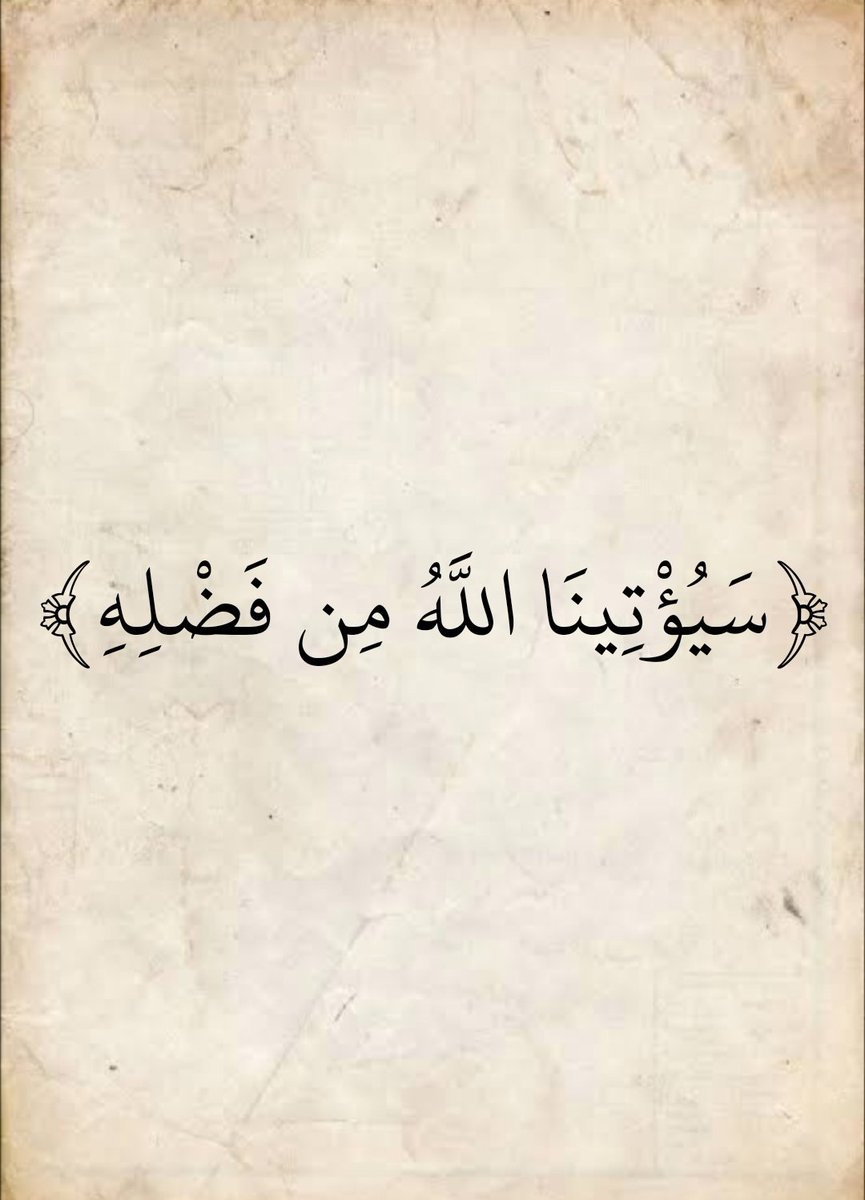 ﴿سَيُؤْتِينَا اللَّهُ مِن فَضْلِهِ﴾